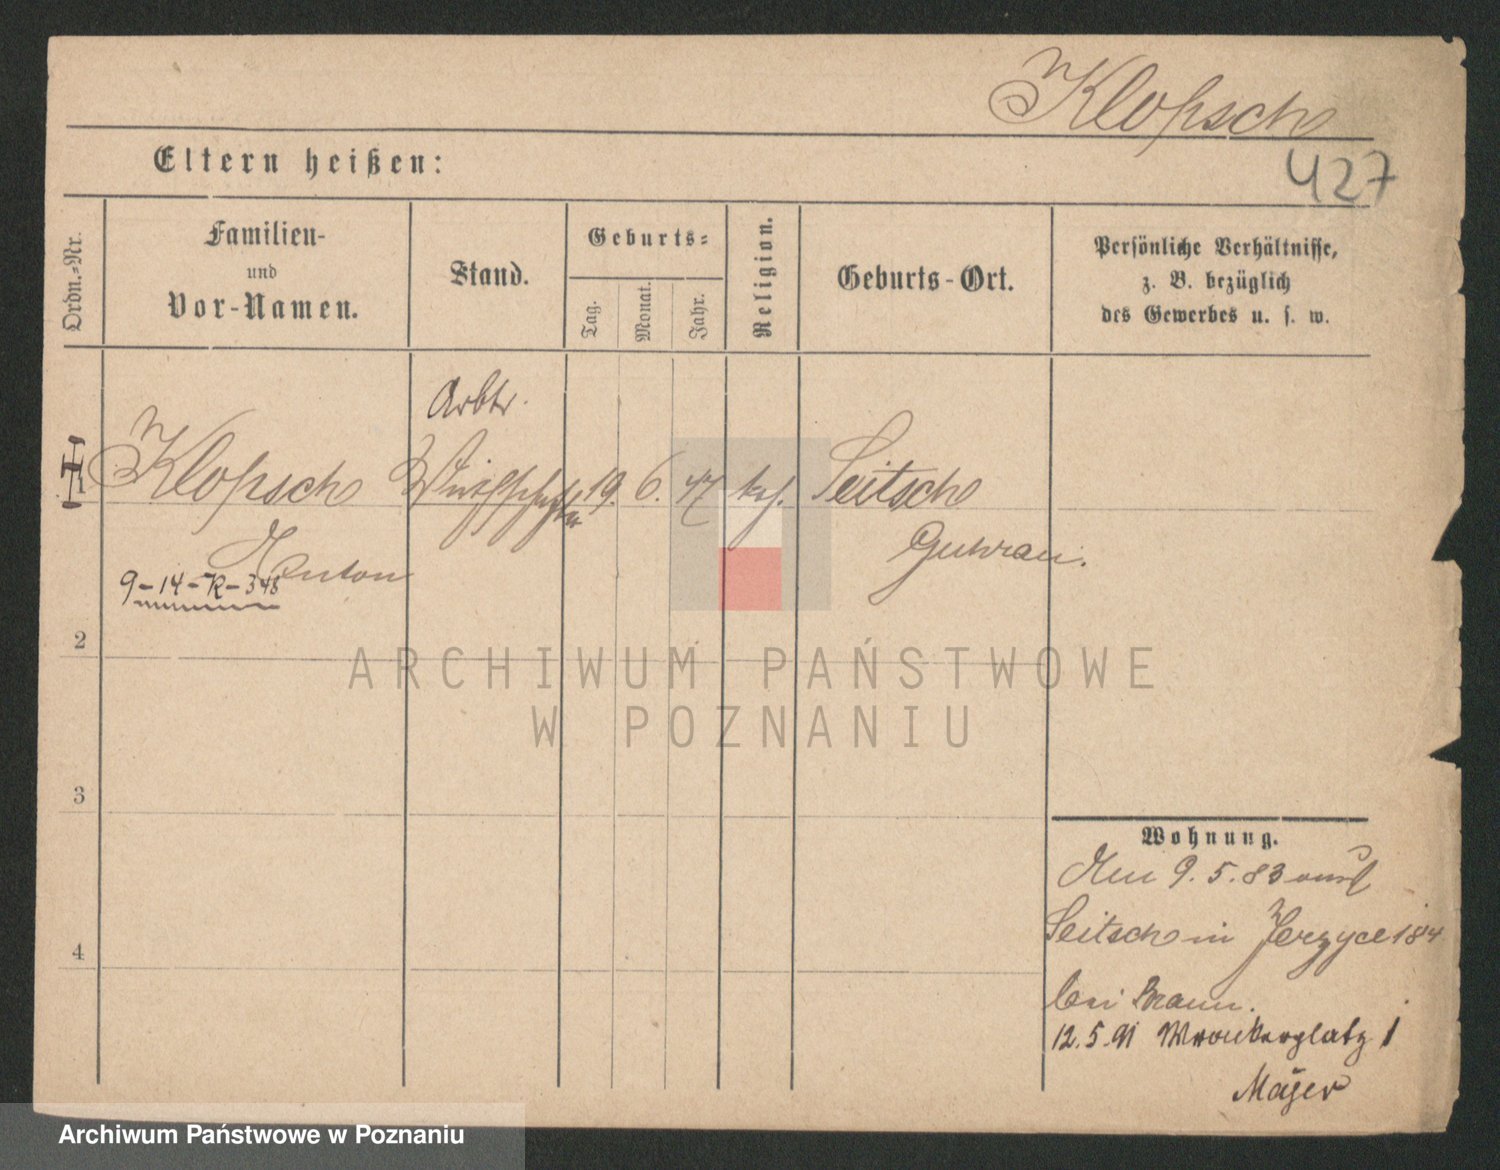 Klopsch
427
Eltern heißen:
Ordn.-Nr.
Familien-
und
Vor-Namen.
Stand.
Geburts-
Tag.
Monat.
Jahr.
Religion.
Geburts-Ort.
Persönliche Verhältnisse,
z. B. bezüglich
des Gewerbes u. s. w.
Arbtr.
1 Klopsch 19. 6. 47 Seitsch
Anton Guhrau.
9-14-K-348
2
ARCHIWUM PAŃSTWOWE
W POZNANIU
3
Wohnung.
9. 5. 83
Seitsch in Jerzyce 184
bei Braun.
4
12.5.91 Wronkerplatz 1
Mayer
Archiwum Państwowe w Poznaniu